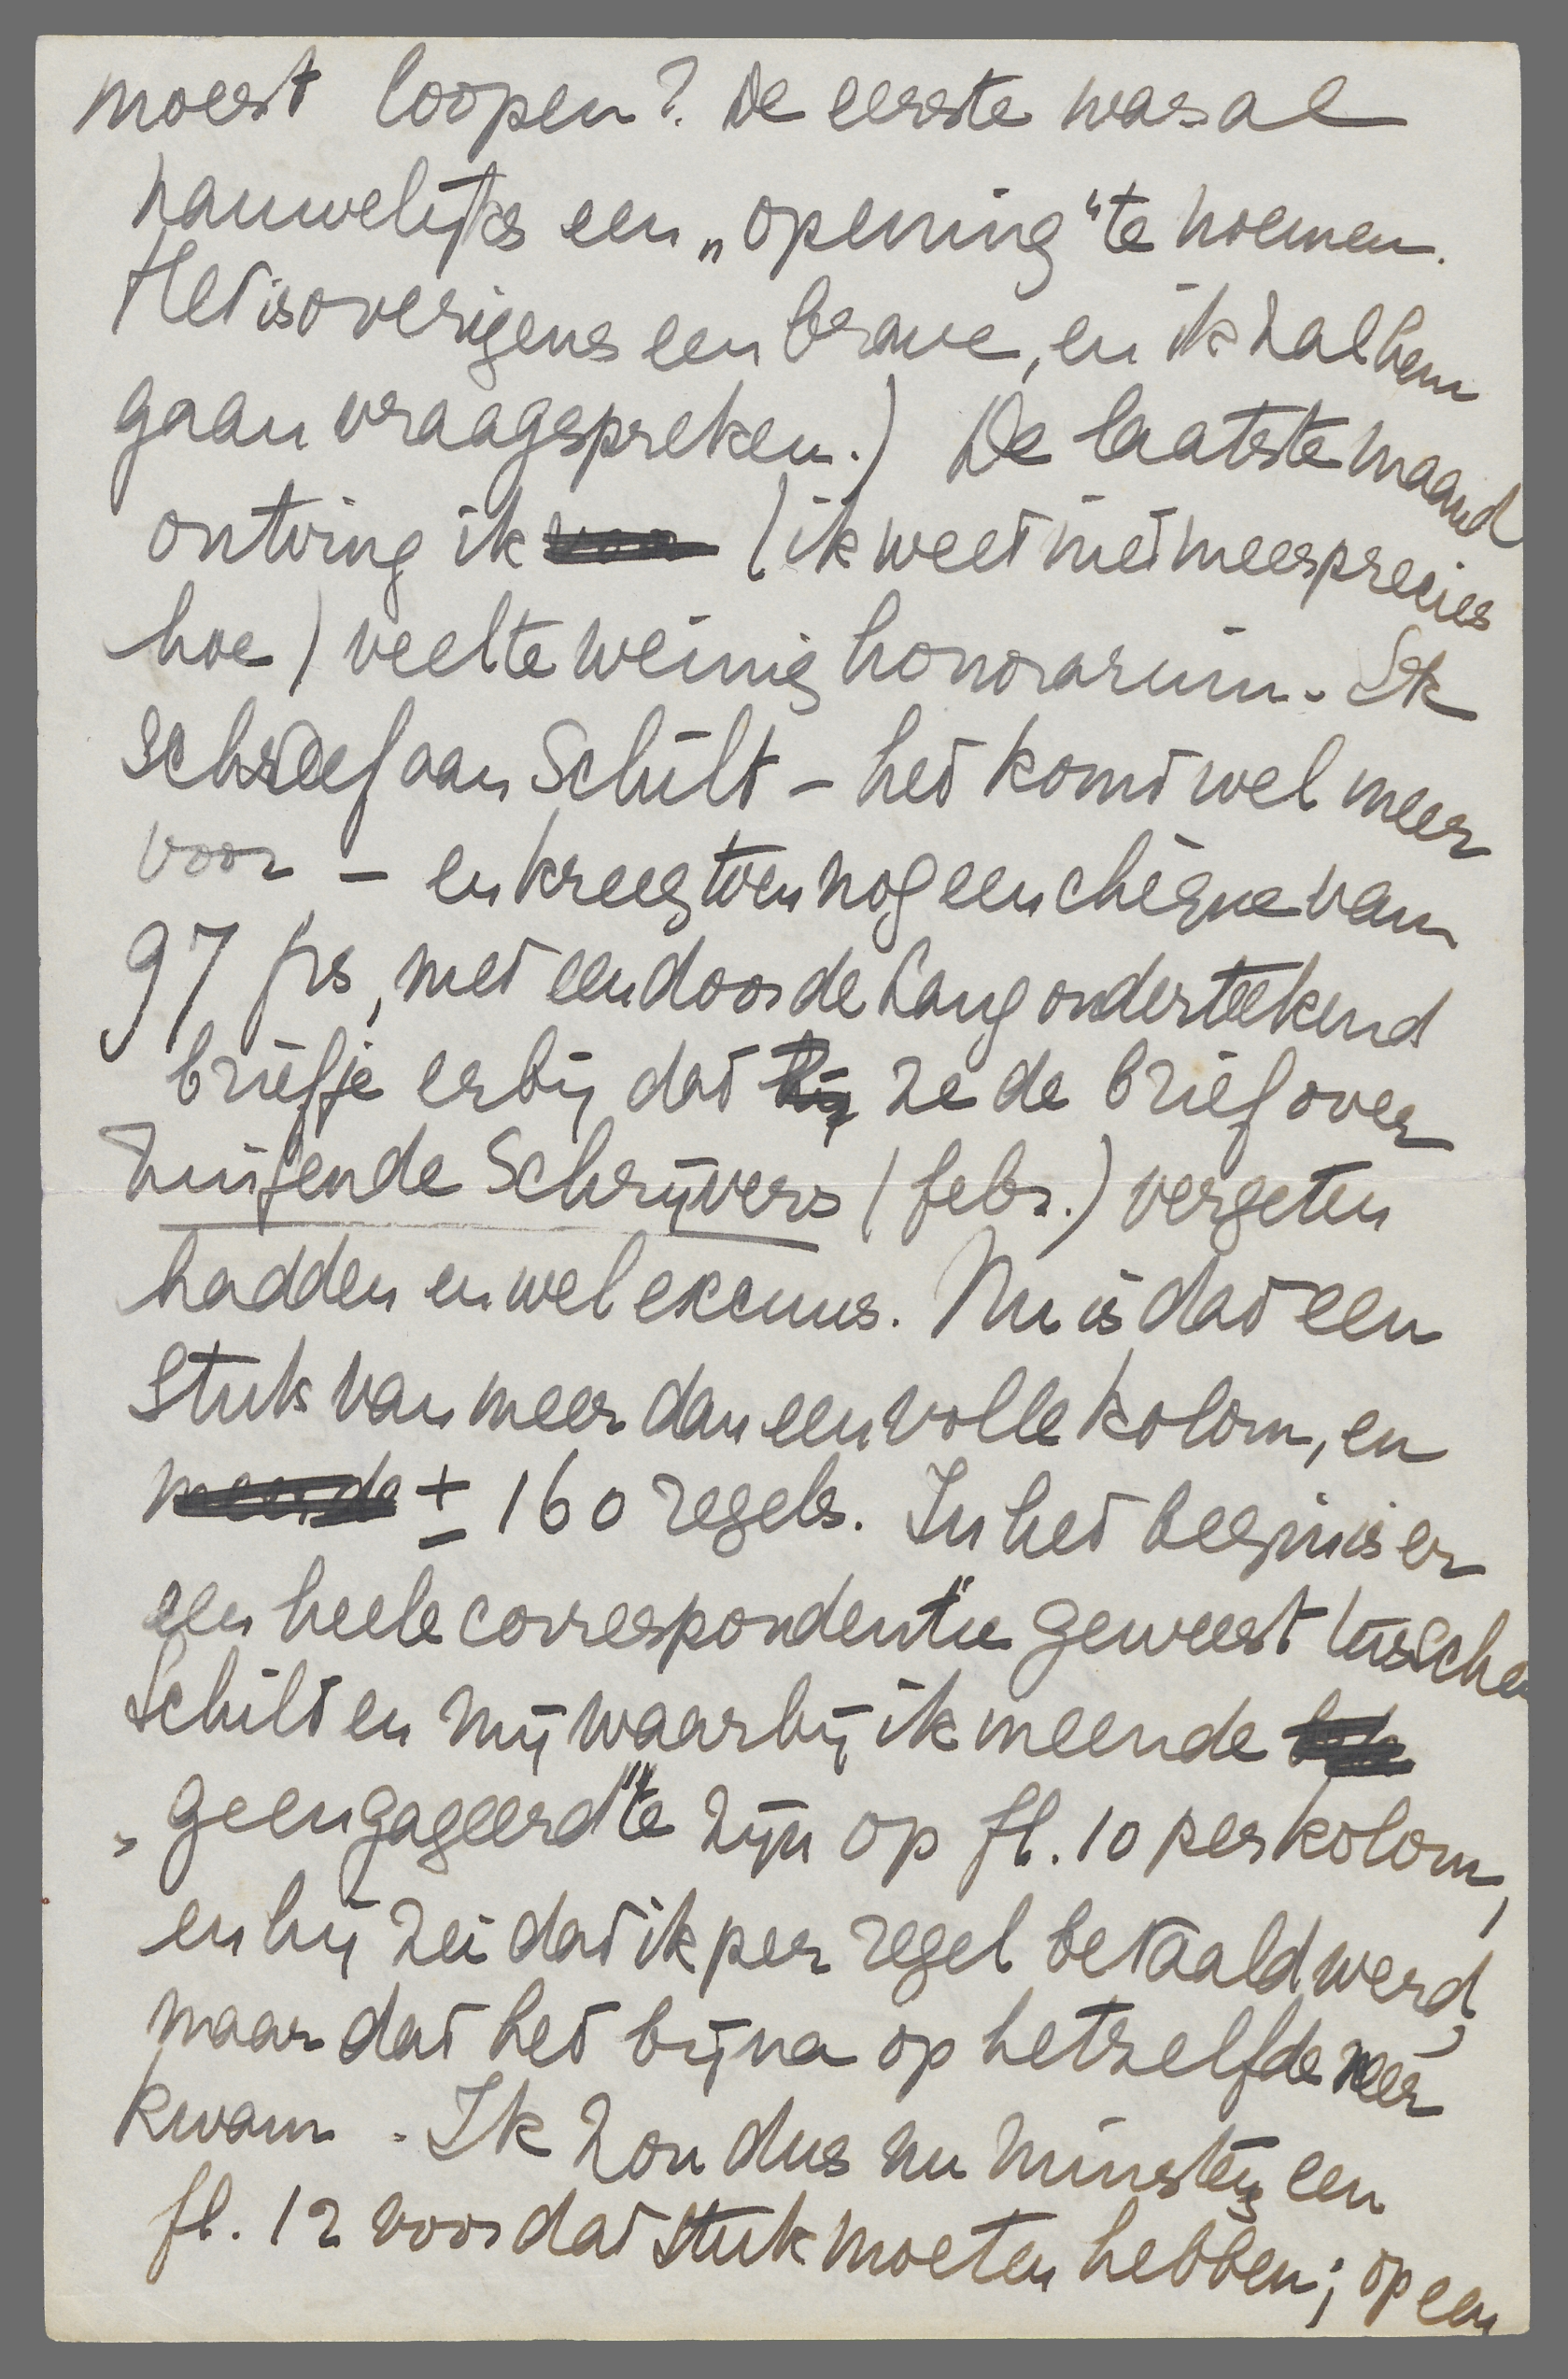 moest loopen? De eerste was al
nauwelijks een „opening” te noemen.
Het is overigens een brave, en ik zal hem
gaan vraagspreken.) De laatste maand
ontving ik (ik weet niet meer precies
hoe) veel te weinig honorarium. Ik
schreef aan Schilt – het komt wel meer
voor – en kreeg toen nog een chèque van
97 frs, met een door de Lang onderteekend
briefje erbij dat hij ze de brief over
Zuipende Schrijvers (febr.) vergeten
hadden en wel excuus. Nu is dat een
stuk van meer dan een volle kolom, en
meende ± 160 regels. In het begin is er
een heele correspondentie geweest tusschen
Schilt en mij waarbij ik meende
„geengageerd” te zijn op fl. 10 per kolom,
en hij zei dat ik per regel betaald werd,
maar dat het bijna op hetzelfde neer
kwam. Ik zou dus nu minstens een
fl. 12 voor dat stuk moeten hebben; op een